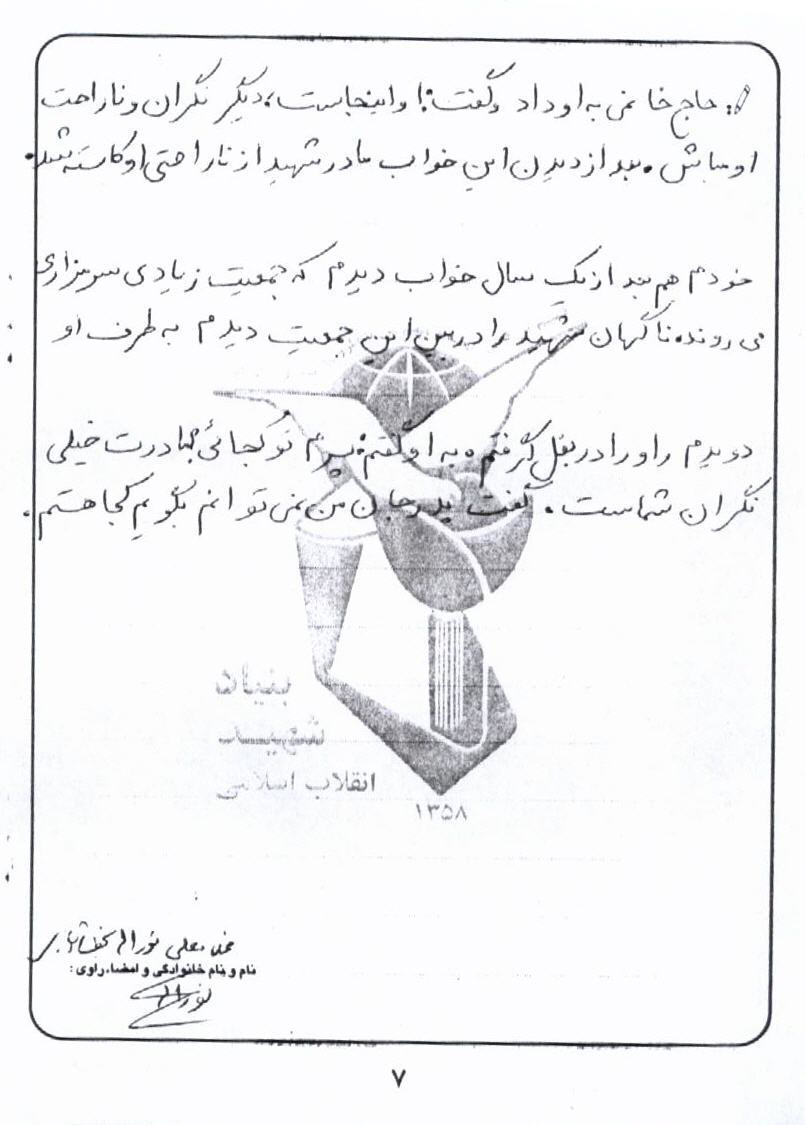 حاج خانمی به او داد و گفت: او اینجاست، دیگر نگران و ناراحت
او مباش. بعد از دیدن این خواب مادر شهید از ناراحتی او کاسته شد.
خودم هم بعد از یک سال خواب دیدم که جمعیت زیادی سر مزاری
می روند، ناگهان شهید را در بین این جمعیت دیدم به طرف او
دویدم و او را در بغل گرفتم. به او گفتم: پسرم تو کجائی مادرت خیلی
نگران شماست. گفت پدر جان من نمی توانم بگویم کجا هستم.
بنیاد
شهید
انقلاب اسلامی
۱۳۵۸
علی
نام و نام خانوادگی و امضاء راوی:
۷